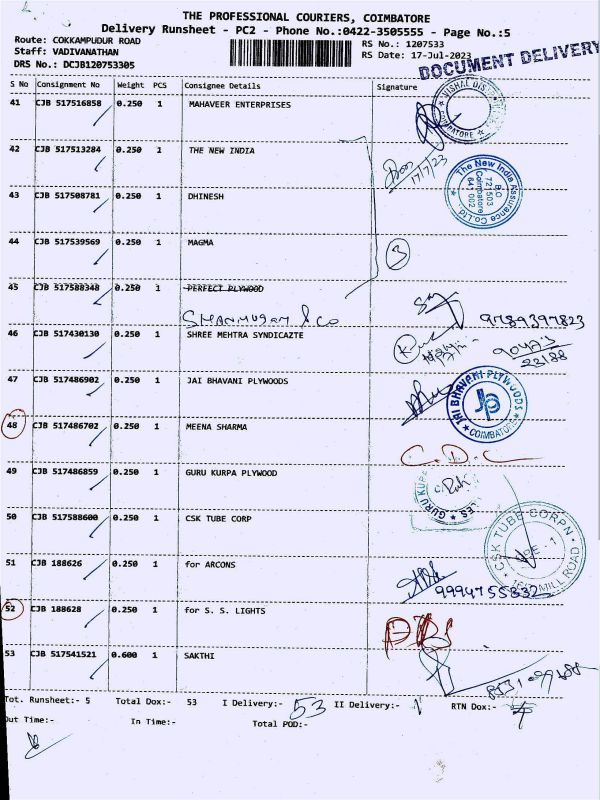 THE PROFESSIONAL COURIERS, COIMBATORE
Delivery Runsheet - PC2 - Phone No.:0422-3505555 - Page No.:5
Route: COKKAMPUDUR ROAD RS No.: 1207533
Staff: VADIVANATHAN RS Date: 17-Jul-2023
DRS No.: DCJB120753305 DOCUMENT DELIVERY
S No Consignment No Weight PCS Consignee Details Signature
41 CJB 517516858 0.250 1 MAHAVEER ENTERPRISES
COIMBATORE
42 CJB 517513284 0.250 1 THE NEW INDIA
17/7/23
The New India Assurance Co.Ltd.
B.O
721503
Coimbatore
641 002
43 CJB 517508781 0.250 1 DHINESH
44 CJB 517539569 0.250 1 MAGMA
3
45 CJB 517588348 0.250 1 PERFECT PLYWOOD
SHANMUGAM & CO 9789397823
46 CJB 517430130 0.250 1 SHREE MEHTRA SYNDICAZTE
23188
47 CJB 517486902 0.250 1 JAI BHAVANI PLYWOODS
JAI BHAVANI PLYWOODS
JP
COIMBATORE
48 CJB 517486702 0.250 1 MEENA SHARMA
C.D.C
49 CJB 517486859 0.250 1 GURU KURPA PLYWOOD
50 CJB 517588600 0.250 1 CSK TUBE CORP
CSK TUBE CORPN
MILL ROAD
51 CJB 188626 0.250 1 for ARCONS
9994755832
52 CJB 188628 0.250 1 for S. S. LIGHTS
53 CJB 517541521 0.600 1 SAKTHI
Tot. Runsheet:- 5 Total Dox:- 53 I Delivery:- 53 II Delivery:- RTN Dox:-
Out Time:- In Time:- Total POD:-